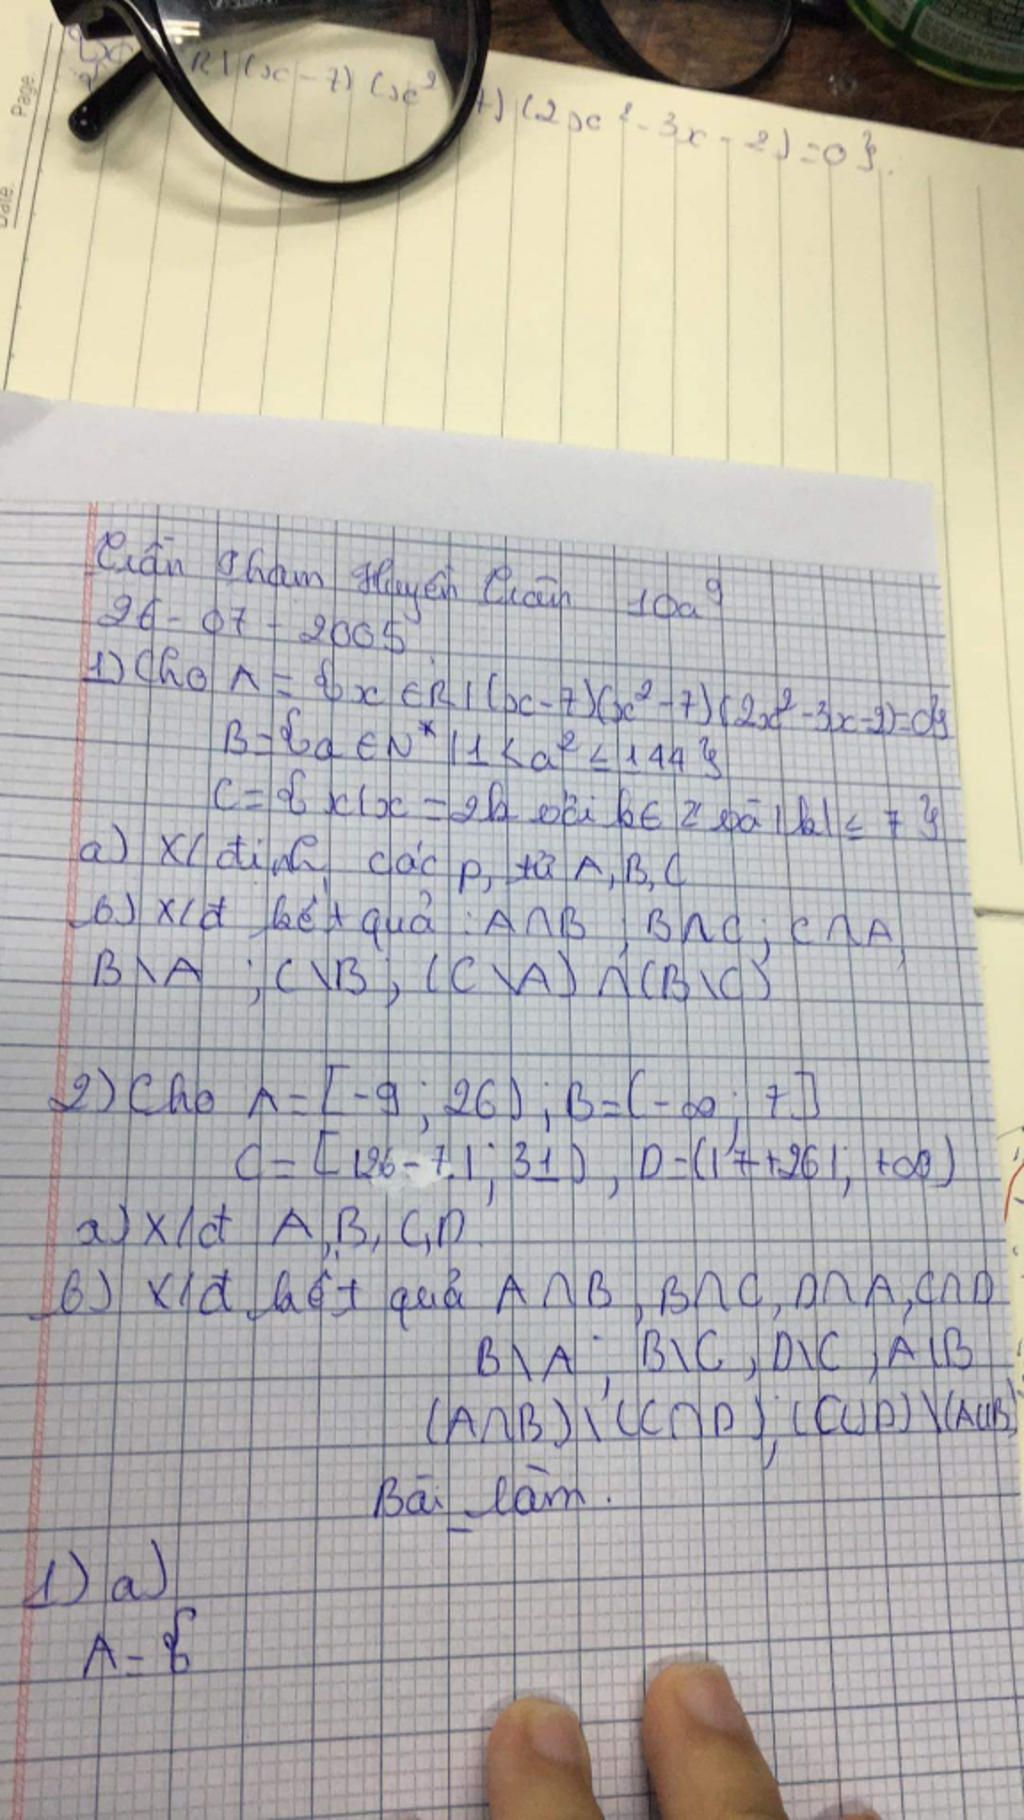 Page
Date.
R | (x - 7) (x² 7) (2x² - 3x - 2) = 0}.
Trần Phạm Huyền Trân 10a9
26 - 07 - 2005
1) Cho A = {x ∈ R | (x - 7)(x² - 7)(2x² - 3x - 2) = 0}
B = {a ∈ N* | 1 < a² ≤ 144}
C = {x | x = 2k với k ∈ Z và |k| ≤ 7}
a) X/định các p, tử A, B, C
b) x/đ kết quả : A∩B ; B∩C ; C∩A,
B\A ; C\B ; (C\A) ∩ (B\C)
2) Cho A = [-9 ; 26) ; B = (-∞ ; 7]
C = [|26 - 7| ; 31) , D = (|7 + 26| ; +∞)
a) X/đ A, B, C, D.
b) X/đ kết quả A∩B, B∩C, D∩A, C∩D
B\A ; B\C , D\C , A\B
(A∩B) \ (C∩D) ; (C∪D) \ (A∪B)
Bài làm.
1) a)
A = {